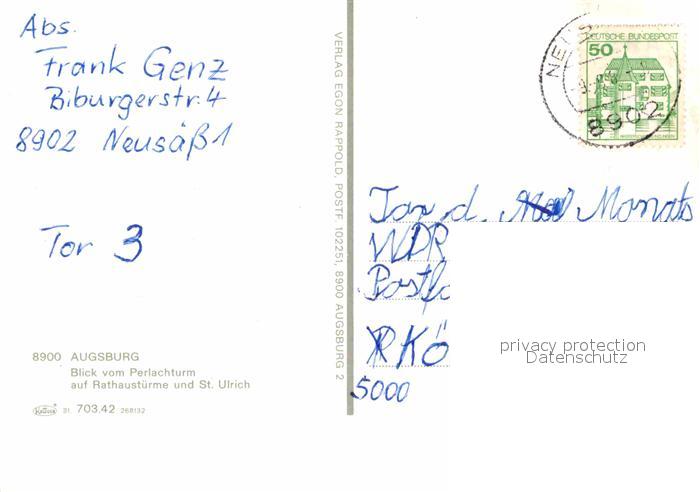 Abs.
Frank Genz
Biburgerstr. 4
8902 Neusäß 1
Tor 3
8900 AUGSBURG
Blick vom Perlachturm
auf Rathaustürme und St. Ulrich
31. 703.42 268132
VERLAG EGON RAPPOLD, POSTF. 102251, 8900 AUGSBURG 2
DEUTSCHE BUNDESPOST
50
NEUS
8902
Tor d. Monats
WDR
Postfa
Kö
5000
privacy protection
Datenschutz